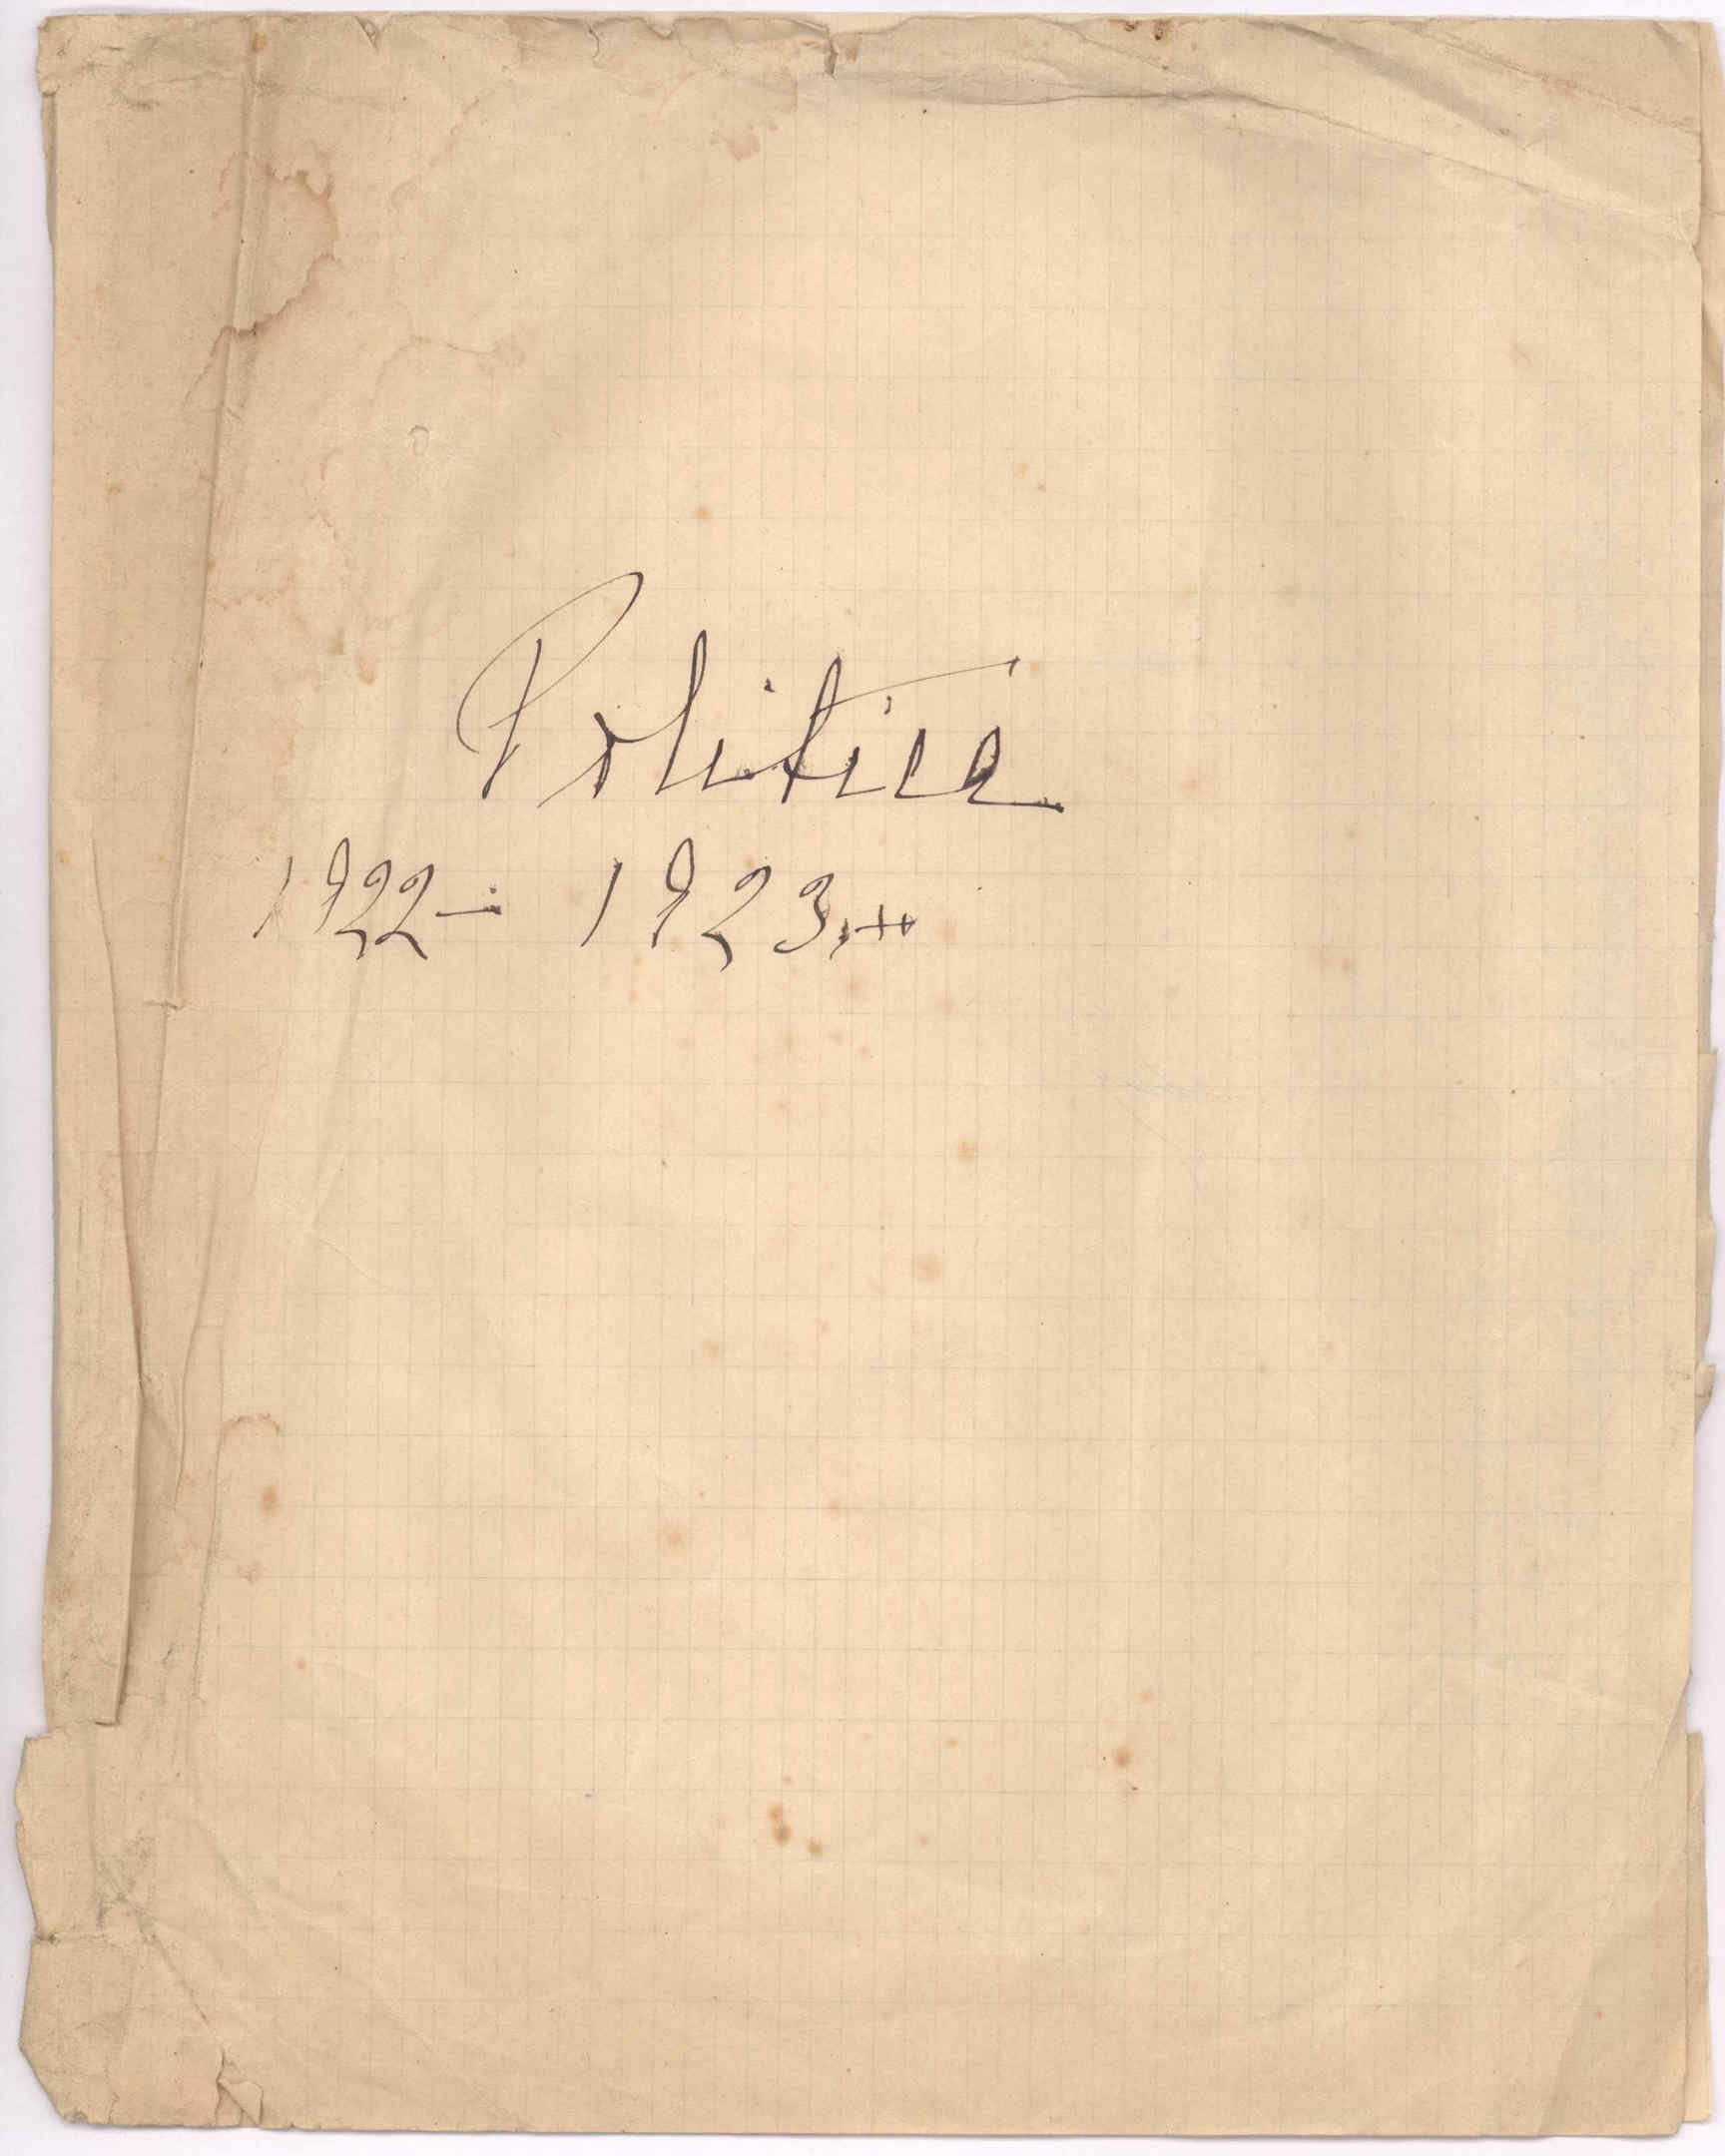 Politica
1922 - 1923